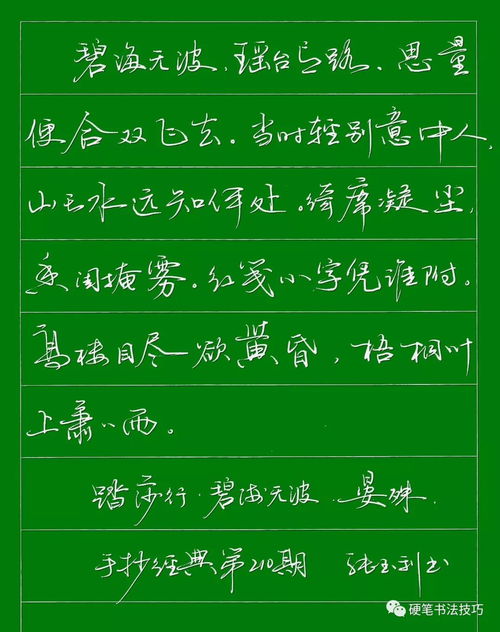 碧海无波、瑶台有路、思量
便合双飞去。当时轻别意中人,
山长水远知何处。绮席凝尘,
香闺掩雾。红笺小字凭谁附。
高楼目尽欲黄昏,梧桐叶
上萧〻雨。
踏莎行·碧海无波 晏殊.
手抄经典第210期 张玉利书
硬笔书法技巧